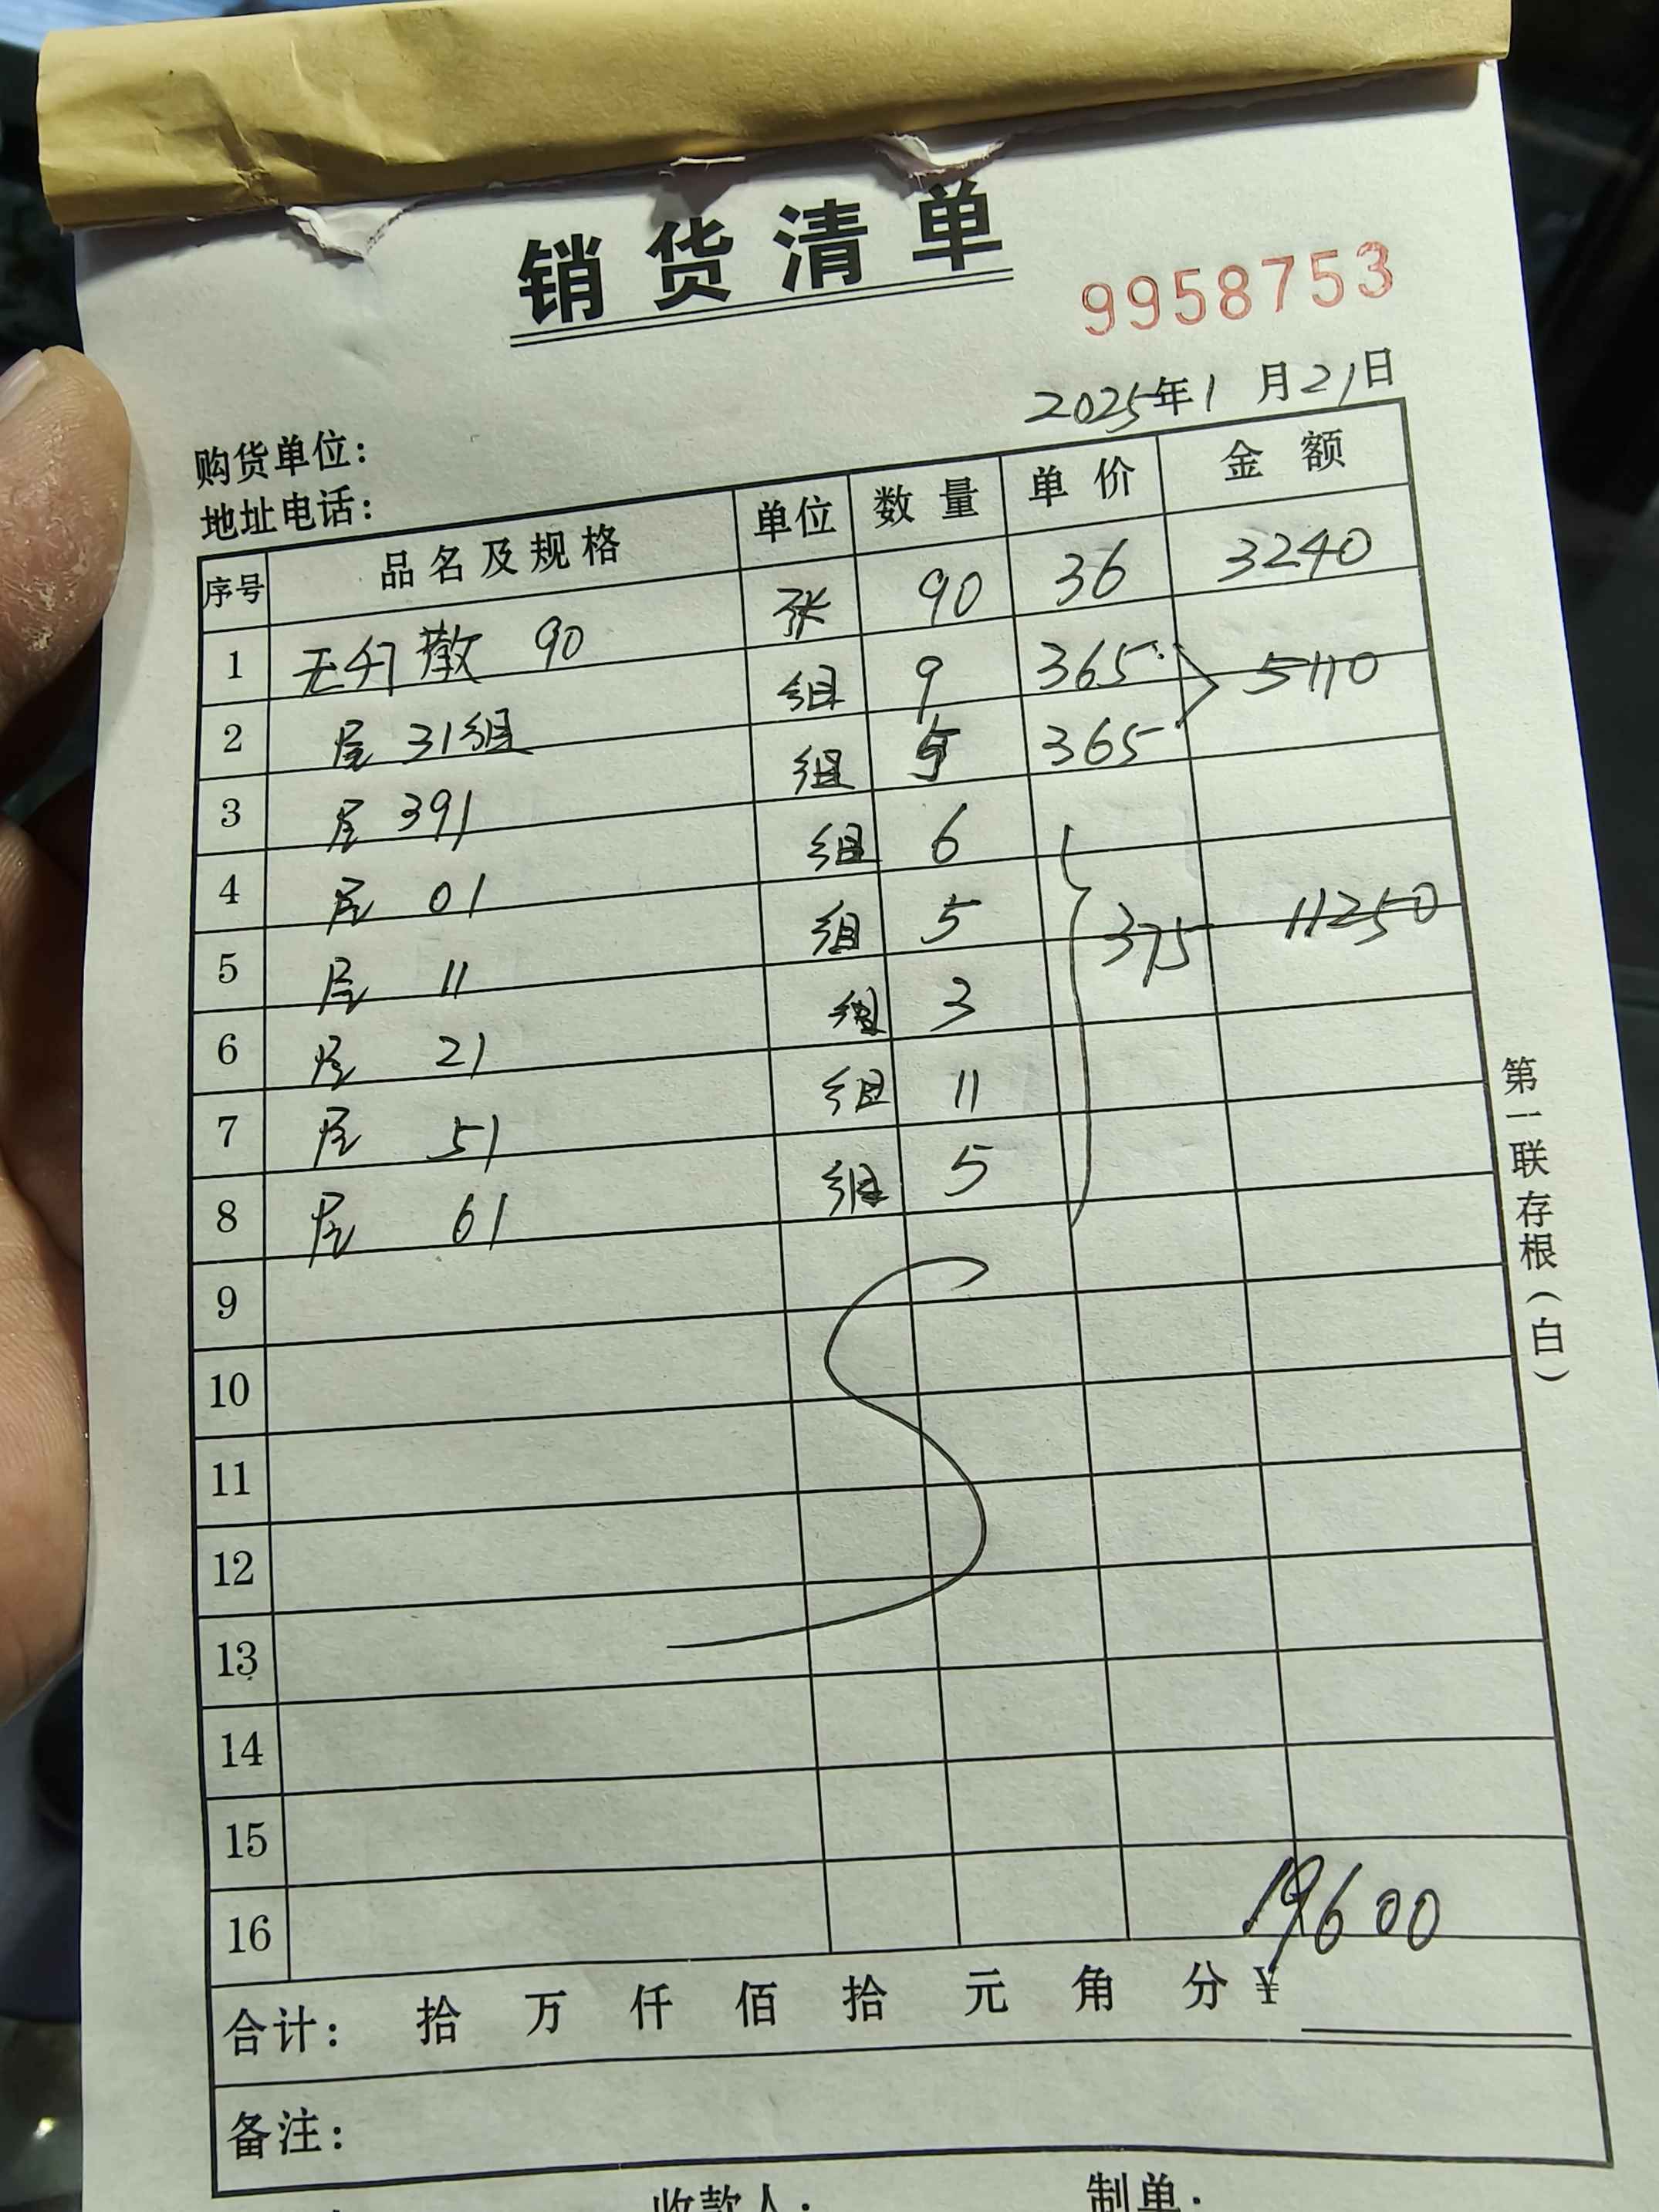 销货清单
9958753
2025年1月21日
购货单位：
地址电话：
序号 品名及规格 单位 数量 单价 金额
1 无47散 90 张 90 36 3240
2 尾 31组 组 9 365 5110
3 尾 391 组 5 365
4 尾 01 组 6
5 尾 11 组 5 375 11250
6 尾 21 组 3
7 尾 51 组 11
8 尾 61 组 5
9
10
11
12
13
14
15
16
19600
合计： 拾 万 仟 佰 拾 元 角 分 ¥
备注：
收款人： 制单：
第一联存根（白）